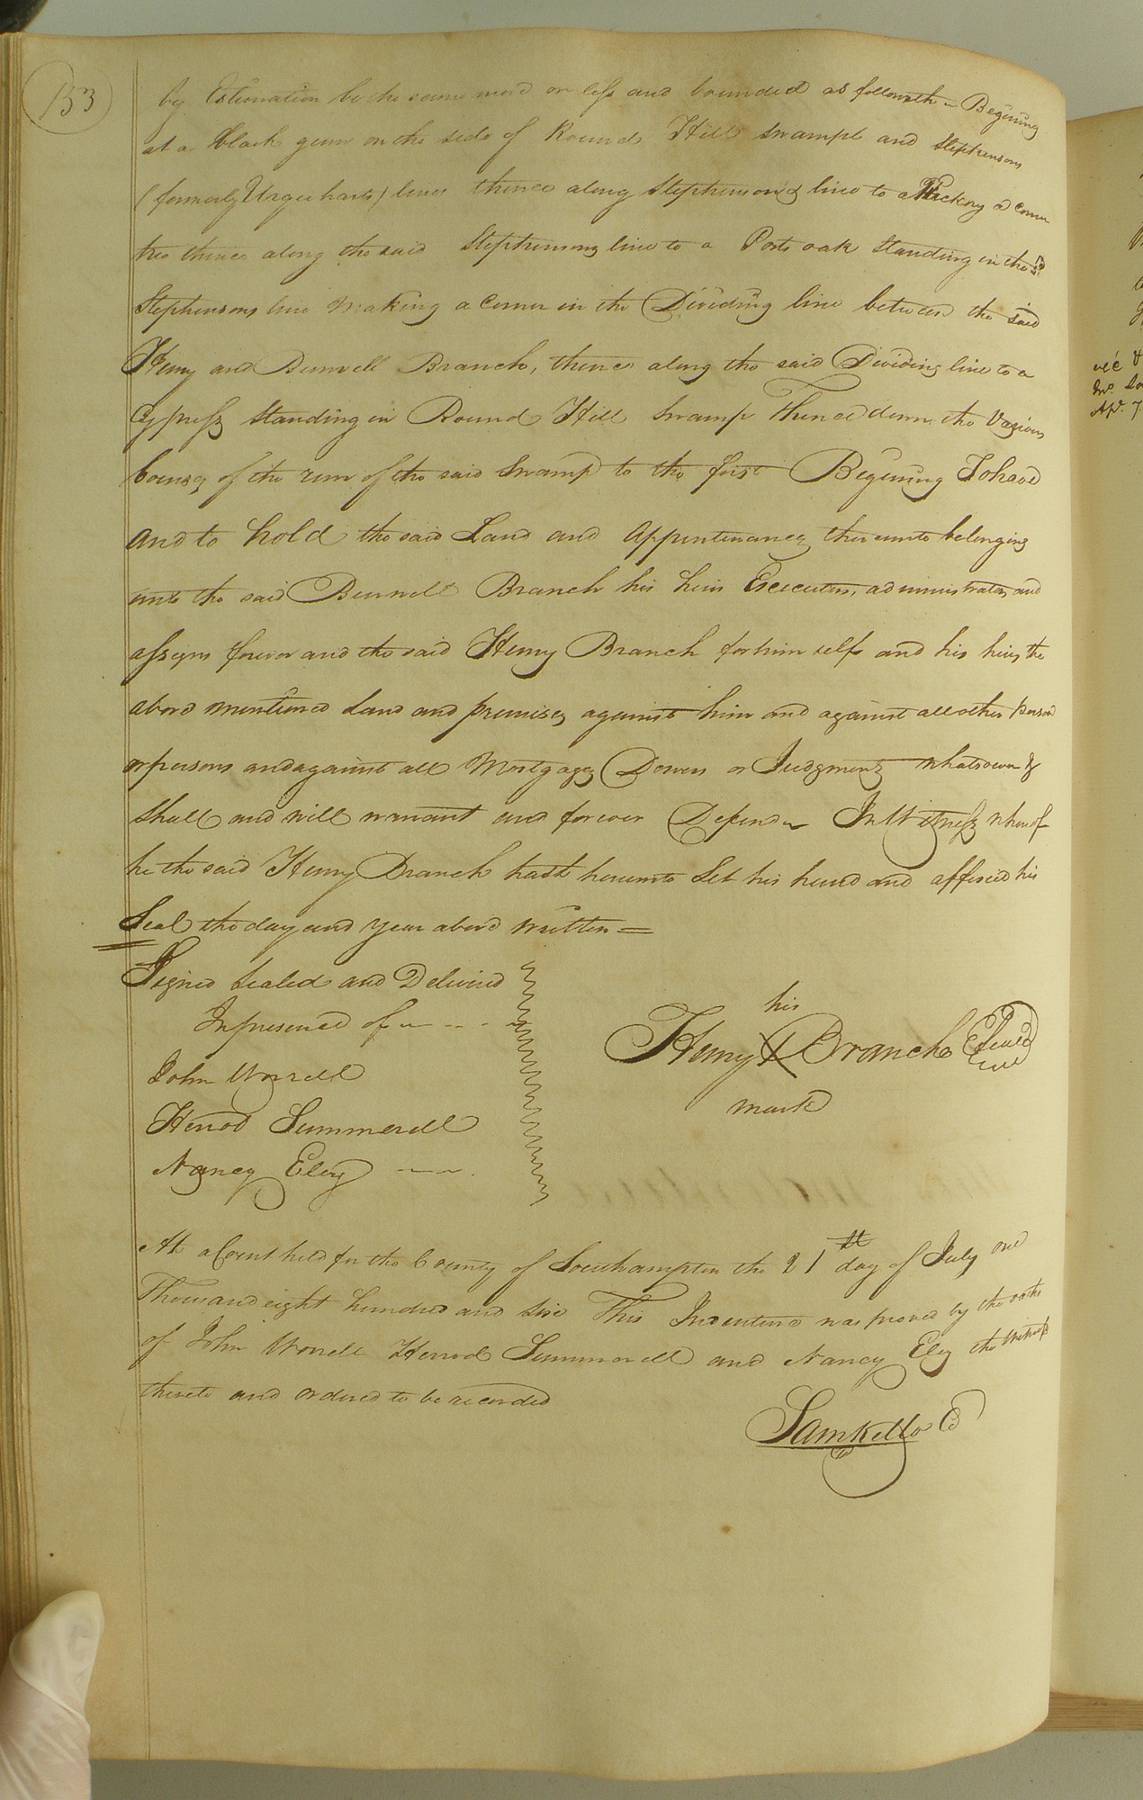 153
by Estimation be the same more or less and bounded as followeth Begining
at a Black gum on the side of Round Hill Swamp and Stephensons
(formerly Urquharts) line thence along Stephenson's line to a Hickory a corner
tree thence along the said Stephensons line to a Post oak Standing in the sd
Stephensons line making a Corner in the Dividing line between the said
Henry and Burwell Branch, thence along the said Dividing line to a
Cypress Standing in Round Hill Swamp Thence down the Various
Courses of the run of the said Swamp to the first Begining To have
and to hold the said Land and Appurtenances thereunto belonging
unto the said Burwell Branch his heirs Executors, administrators and
assigns forever and the said Henry Branch for him self and his heirs the
above mentioned Land and premises against him and against all other person
or persons and against all Mortgages Dowers or Judgments whatsoever
Shall and will warrant and forever Defend In Witness whereof
he the said Henry Branch hath hereunto Set his hand and affixed his
Seal the day and year above written =
Signed Sealed and Delivered
In presence of
his
Henry X Branch Seal
mark
John Worrell
Herod Summerell
Nancy Eley
At a Court held for the County of Southampton the 21st day of July one
Thousand eight hundred and six This Indenture was proved by the oaths
of John Worrell Herrod Summerell and Nancy Eley the witnesses
thereto and ordered to be recorded
Sam Kello C